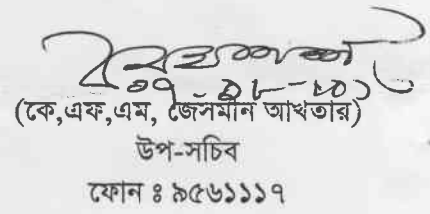 (কে,এফ,এম, জেসমীন আখতার)
উপ-সচিব
ফোন ঃ ৯৫৬১১১৭